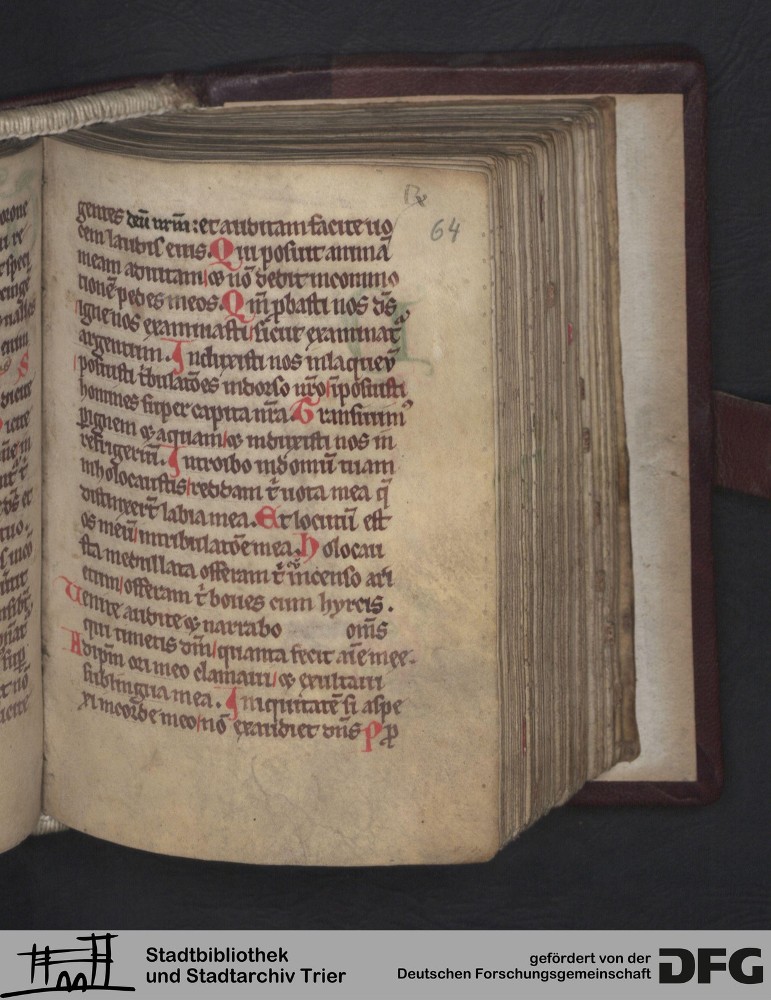 gentes deū urm̄: et auditam facite uo
cem laudis eius. Qui posuit animā
meam aduitam / ⁊ nō dedit incommo
tionē pedes meos. Qm̄ pbasti nos ds̄
igne nos examinasti / sicut examinat̄
argentum. Induxisti nos inlaqueū
posuisti tbulatōes indorso nr̄o / iposuisti
homines super capita nr̄a. Transiuim
pignem ⁊ aquam / ⁊ induxisti nos in
refrigeriū. Introibo indomū tuam
inholocaustis / reddam t̄ uota mea q̄
distinxer̄t labia mea. Et locutū est
os meū / intribulatōe mea. Holocau
sta medullata offeram t̄ cū incenso ari
etum / offeram t̄ boues cum hyrcis.
Uenite audite ⁊ narrabo omīs
qui timetis dm̄ / quanta fecit aīe mee.
Adipm̄ ore meo clamaui / ⁊ exultaui
sublingua mea. Iniquitatē si aspe
xi incorde meo / nō exaudiet dn̄s Pp
64
Stadtbibliothek
und Stadtarchiv Trier
gefördert von der
Deutschen Forschungsgemeinschaft
DFG